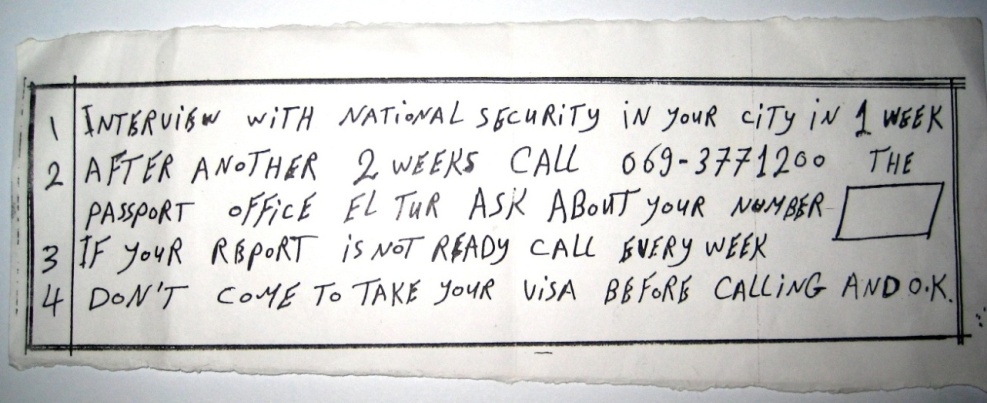 1 INTERVIEW WITH NATIONAL SECURITY IN YOUR CITY IN 1 WEEK
2 AFTER ANOTHER 2 WEEKS CALL 069-3771200 THE
PASSPORT OFFICE EL TUR ASK ABOUT YOUR NUMBER
3 IF YOUR REPORT IS NOT READY CALL EVERY WEEK
4 DON'T COME TO TAKE YOUR VISA BEFORE CALLING AND O.K.